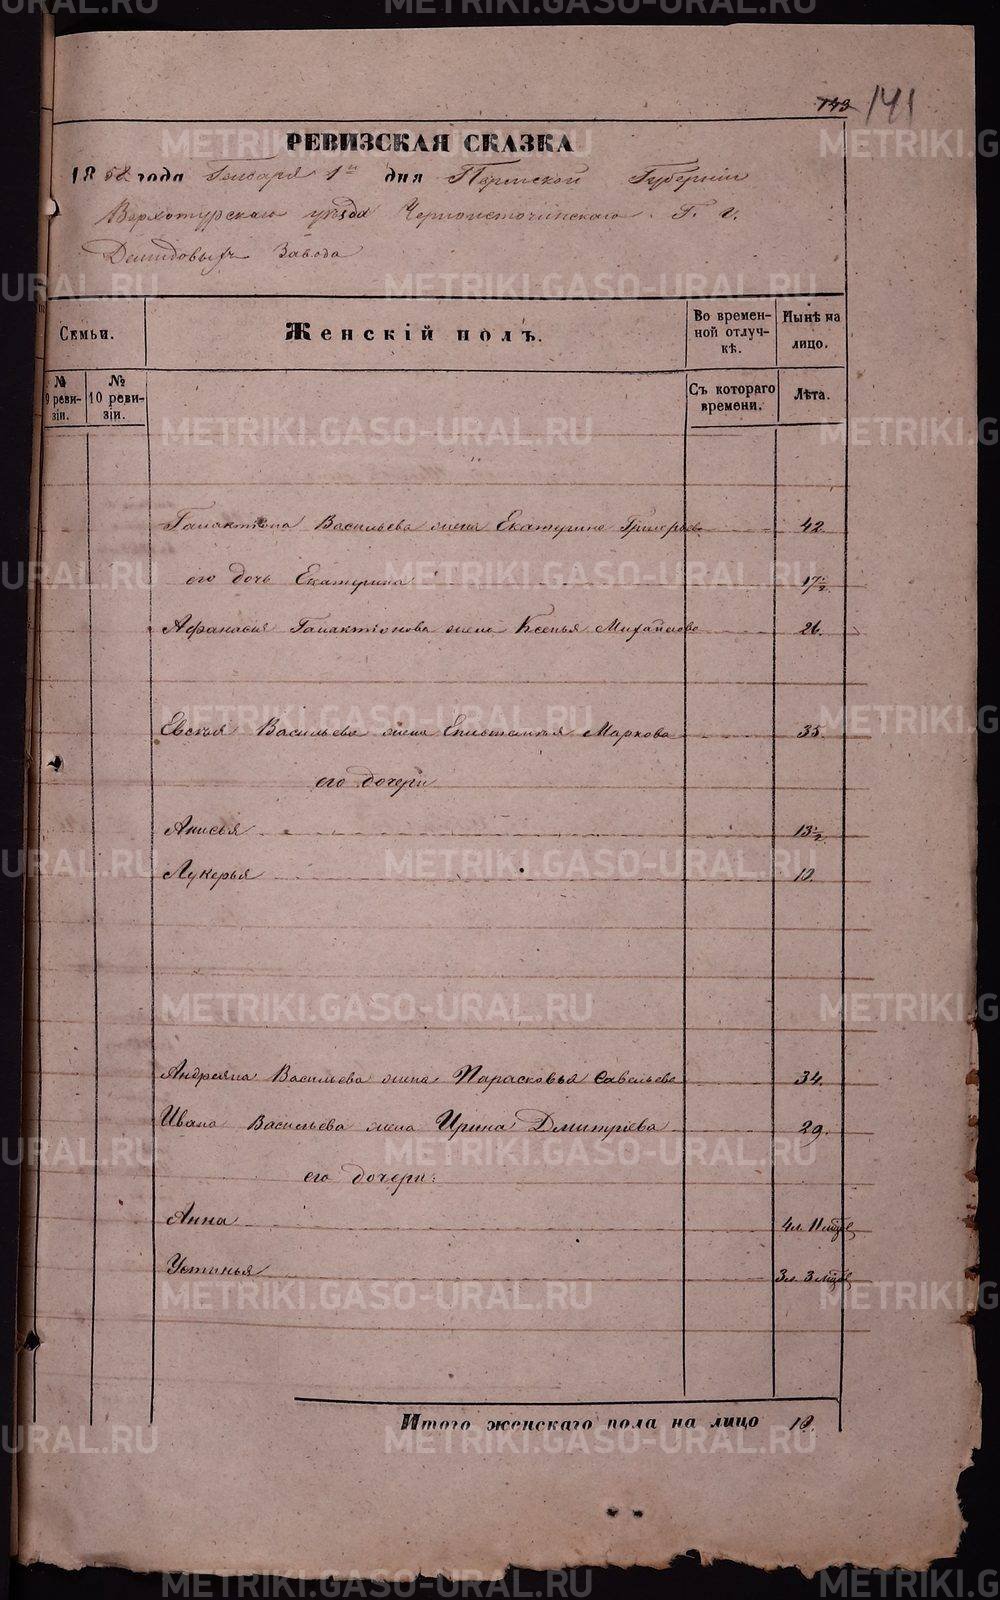 143 141
РЕВИЗСКАЯ СКАЗКА
1858 года Генваря 1го дня Пермской Губернии
Верхотурскаго уѣзда Черноисточинскаго Г. г.
Демидовыхъ Завода
Семьи.
Женскій полъ.
Во временной отлучкѣ.
Нынѣ на лицо.
№ 9 ревизіи.
№ 10 ревизіи.
Съ котораго времени.
Лѣта.
Галактіона Васильева жена Екатерина Григорьева 42
его дочь Екатерина 17½
Афанасія Галактіонова жена Ксенья Михайлова 26.
Васильева жена Епистимья Маркова 35.
его дочери
Анисья 13½
Лукерья 10.
Андреяна Васильева жена Парасковья Савельева 34.
Ивана Васильева жена Ирина Дмитріева 29.
его дочери:
Анна 4л. 11 мѣс
Устинья 3л. 3 мѣс
Итого женскаго пола на лицо 10.
METRIKI.GASO-URAL.RU